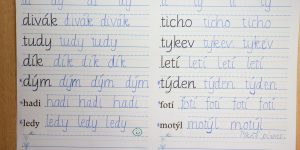 divák divák divák
tudy tudy tudy
dík dík dík dík
dým dým dým dým
hadi hadi hadi hadi
ledy ledy ledy ledy
ticho ticho ticho
tykev tykev tykev
letí letí letí letí
týden týden týden
fotí fotí fotí fotí
motýl motýl motýl